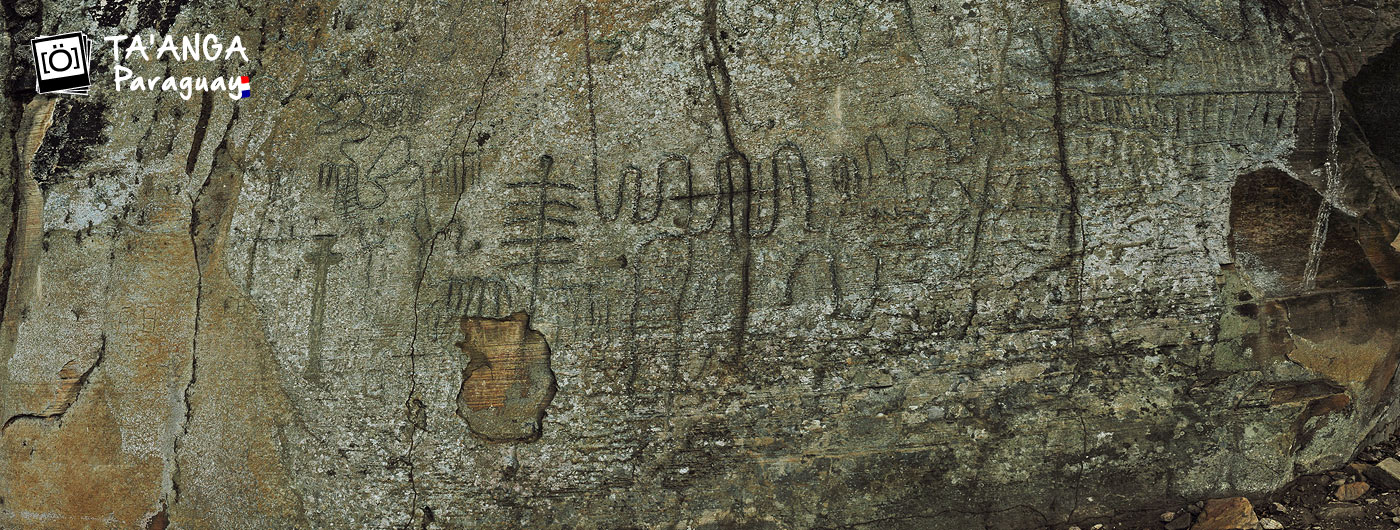 TA'ANGA
Paraguay